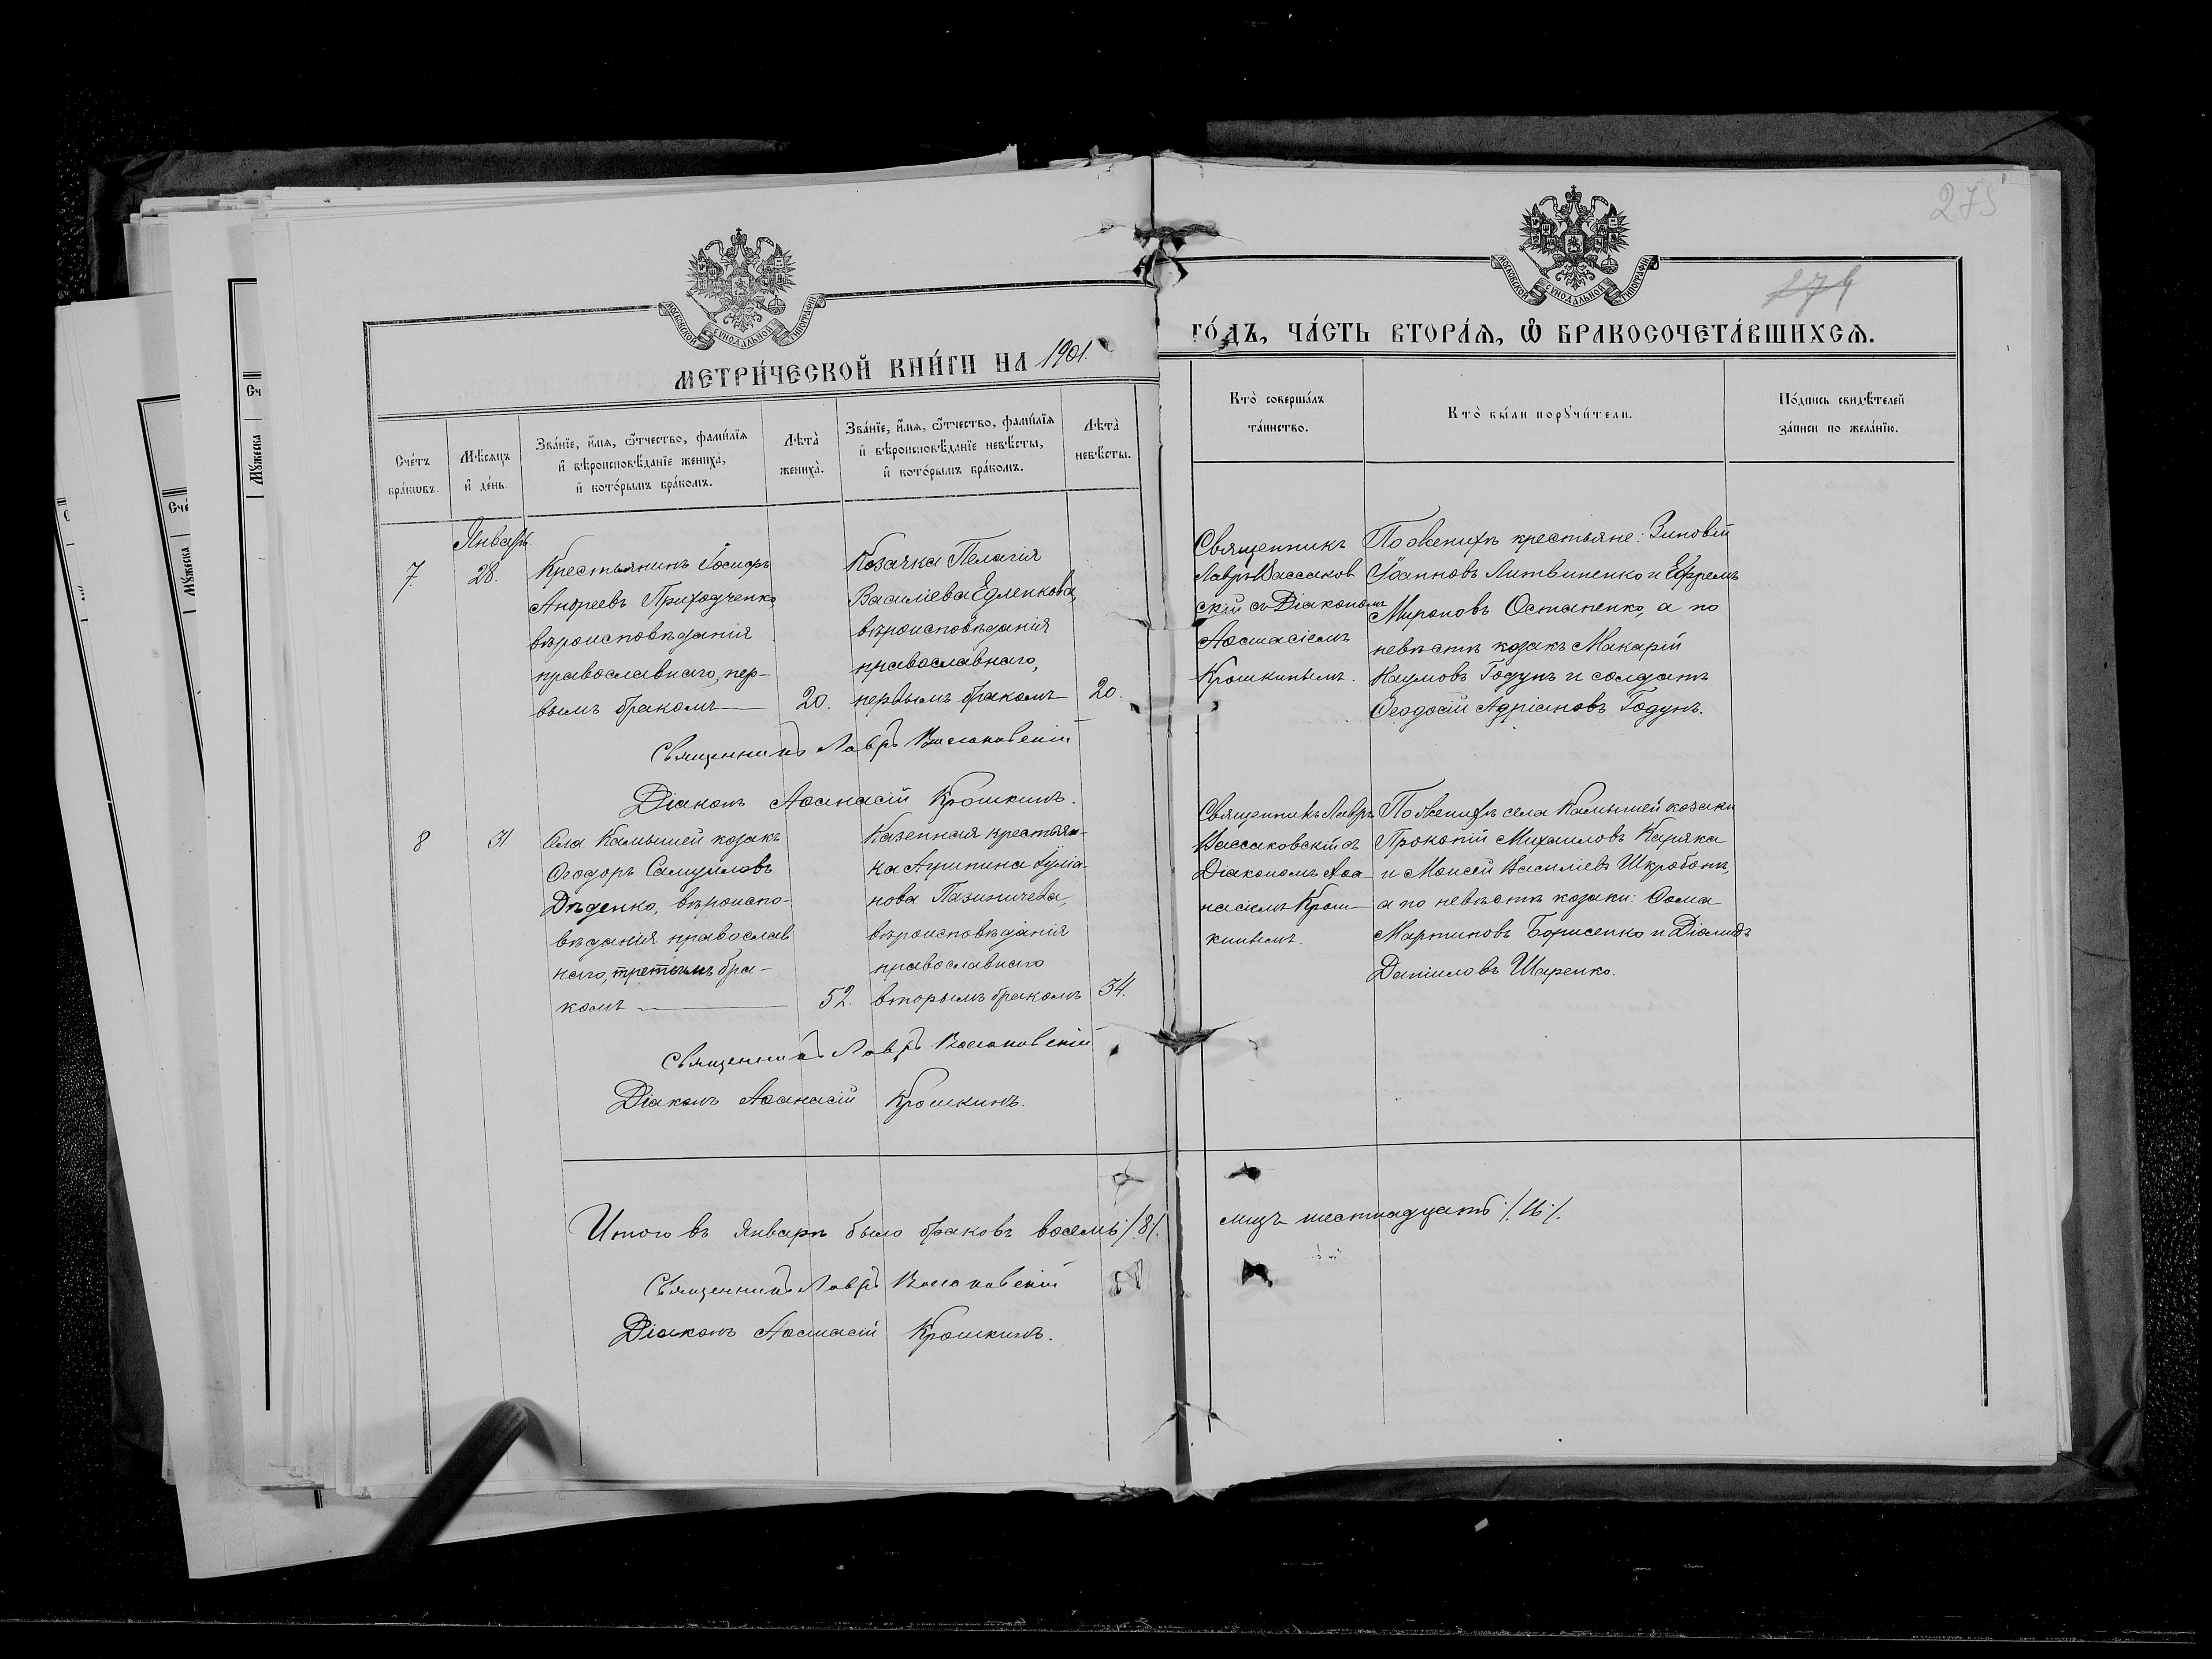 275
274
МОСКОВСКОЙ СУНОДАЛЬНОЙ ТИПОГРАФІИ
МОСКОВСКОЙ СУНОДАЛЬНОЙ ТИПОГРАФІИ
МЕТРИ́ЧЕСКОЙ КНИ́ГИ НА 1901.
ГО́ДЪ, ЧА́СТЬ ВТОРА́Я, Ѡ БРАКОСОЧЕТА́ВШИХСЯ.
Сче́тъ
бра́ковъ.
Мѣ́сяцъ
и де́нь
Зва́нїе, и́мя, ѻ҆́тчество, фами́лїя
и вѣроисповѣ́данїе жениха̀,
и кото́рымъ бра́комъ.
Лѣта̀
жениха̀.
Зва́нїе, и́мя, ѻ҆́тчество, фами́лїя
и вѣроисповѣ́данїе невѣ́сты,
и кото́рымъ бра́комъ.
Лѣта̀
невѣ́сты.
Кто̀ соверша́лъ
та́инство.
Кто̀ бы́ли порꙋчи́тели.
По́дпись свидѣ́телей
за́писи по жела́нїю.
Январь
7
28.
Крестьянинъ Іосифъ
Андреевъ Приходченко
вѣроисповѣданія
православнаго, пер-
вымъ бракомъ
20.
Козачка Пелагія
Василіева Едленкова,
вѣроисповѣданія
православнаго,
первымъ бракомъ
20.
Священникъ
Лавръ Вассаков
скій съ Діакономъ
Аѳанасіемъ
Крошкинымъ.
По женихѣ крестьяне: Зиновій
Іоанновъ Литвиненко и Ефремъ
Мироновъ Остапенко, а по
невѣстѣ козакъ Макарій
Наумовъ Годунъ и солдатъ
Ѳеодосій Адріановъ Годунъ.
Священникъ Лавръ Вассаковскій
Діаконъ Аѳанасій Крошкинъ.
8
31.
Села Камышей козакъ
Ѳеодоръ Самуиловъ
Дѣденко, вѣроиспо-
вѣданія православ
наго, третьимъ бра-
комъ
52.
Казенная крестьян-
ка Агрипина Іуліа-
нова Пазиничева,
вѣроисповѣданія
православнаго
вторымъ бракомъ
34.
Священникъ Лавръ
Вассаковскій съ
Діакономъ Аѳа-
насіемъ Крош-
кинымъ.
По женихѣ села Камышей козаки
Прокопій Михаиловъ Каряка
и Моисей Василіевъ Шкроботъ,
а по невѣстѣ козаки: Ѳома
Мартиновъ Борисенко и Діомидъ
Даніиловъ Шаренко.
Священникъ Лавръ Вассаковскій
Діаконъ Аѳанасій Крошкинъ.
Итого въ Январѣ было браковъ восемь /.8/.
лицъ шестнадцать /.16./.
Священникъ Лавръ Вассаковскій
Діаконъ Аѳанасій Крошкинъ.